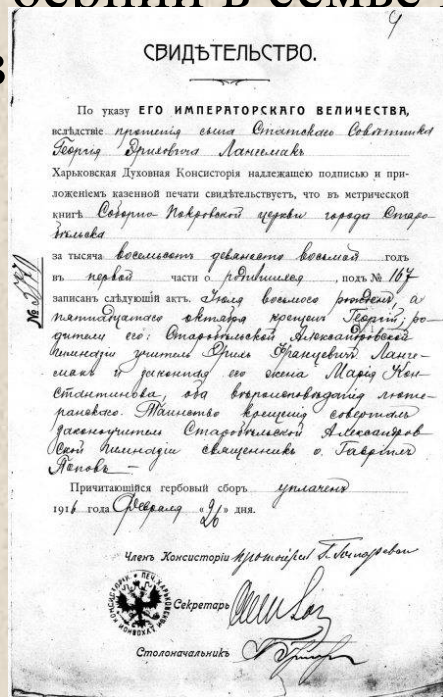 4
СВИДѢТЕЛЬСТВО.
По указу ЕГО ИМПЕРАТОРСКАГО ВЕЛИЧЕСТВА,
вслѣдствіе прошенія сына Статскаго Совѣтника
Георгія Эриховича Лангемакъ
Харьковская Духовная Консисторія надлежащею подписью и при-
ложеніемъ казенной печати свидѣтельствуетъ, что въ метрической
книгѣ Соборно-Покровской церкви города Старо-
бѣльска
за тысяча восемьсотъ девяносто восьмой годъ
въ первой части о родившихся, подъ № 167
записанъ слѣдующій актъ. Іюля восьмого рожденъ, а
пятнадцатаго октября крещенъ Георгій; ро-
дители его: Старобѣльской Александровской
гимназіи учитель Францевичъ Ланге-
макъ и законная его жена Марія Кон-
стантинова, оба вѣроисповѣданія люте-
ранскаго. Таинство крещенія совершалъ
законоучитель Старобѣльской Александров-
ской гимназіи священникъ о. Гавріилъ
Поповъ
Причитающійся гербовый сборъ уплаченъ
1916 года Февраля «26» дня.
Членъ Консисторіи протоіерей
Секретарь
Столоначальникъ